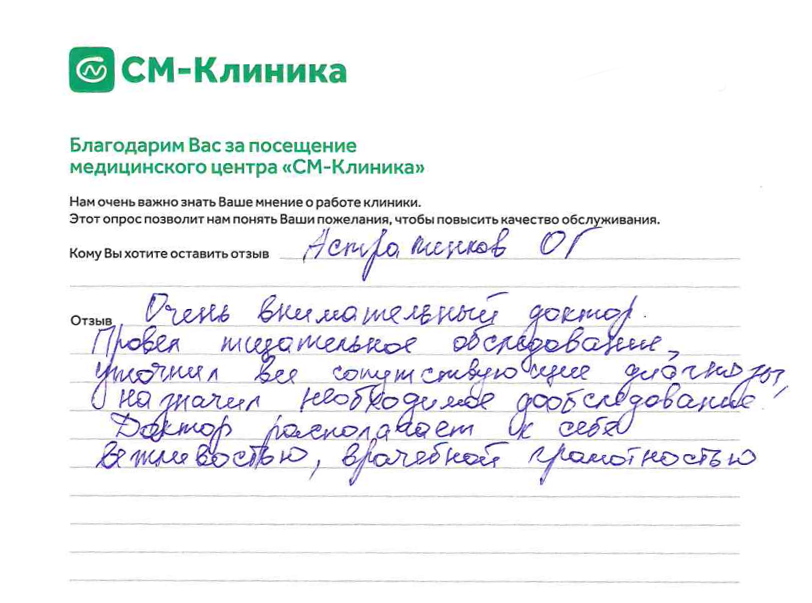 СМ-Клиника
Благодарим Вас за посещение
медицинского центра «СМ-Клиника»
Нам очень важно знать Ваше мнение о работе клиники.
Этот опрос позволит нам понять Ваши пожелания, чтобы повысить качество обслуживания.
Кому Вы хотите оставить отзыв Астраменков ОГ
Отзыв Очень внимательный доктор.
Провел тщательное обследование,
уточнил все сопутствующие диагнозы,
назначил необходимое дообследование.
Доктор располагает к себе
вежливостью, врачебной грамотностью